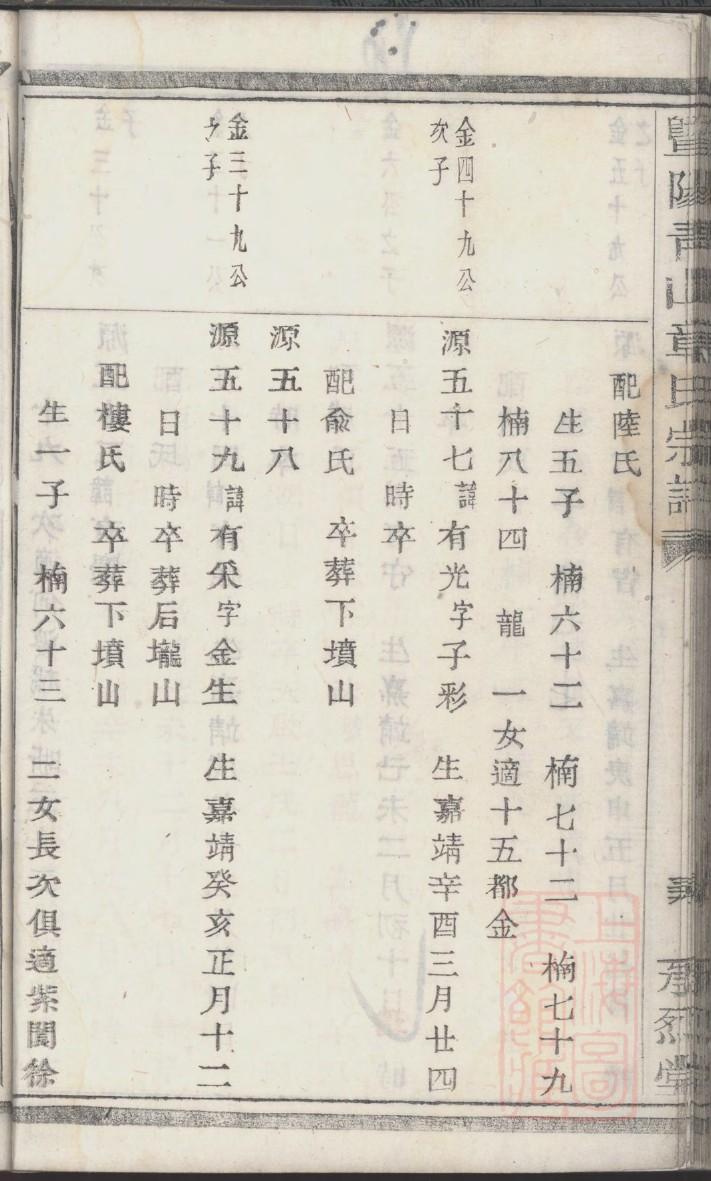 暨陽靑山章氏宗譜
承烈堂
配陸氏
生五子 楠六十二 楠七十二 楠七十九
楠八十四 龍 一女適十五都金
金四十九公
次子
源五十七諱有光字子彩 生嘉靖辛酉三月廿四
日時卒
配俞氏 卒葬下墳山
源五十八
金三十九公
之子
源五十九諱有采字金生 生嘉靖癸亥正月十二
日時卒葬后壠山
配樓氏 卒葬下墳山
生一子 楠六十三 二女長次俱適紫閬徐
上海圖書館藏